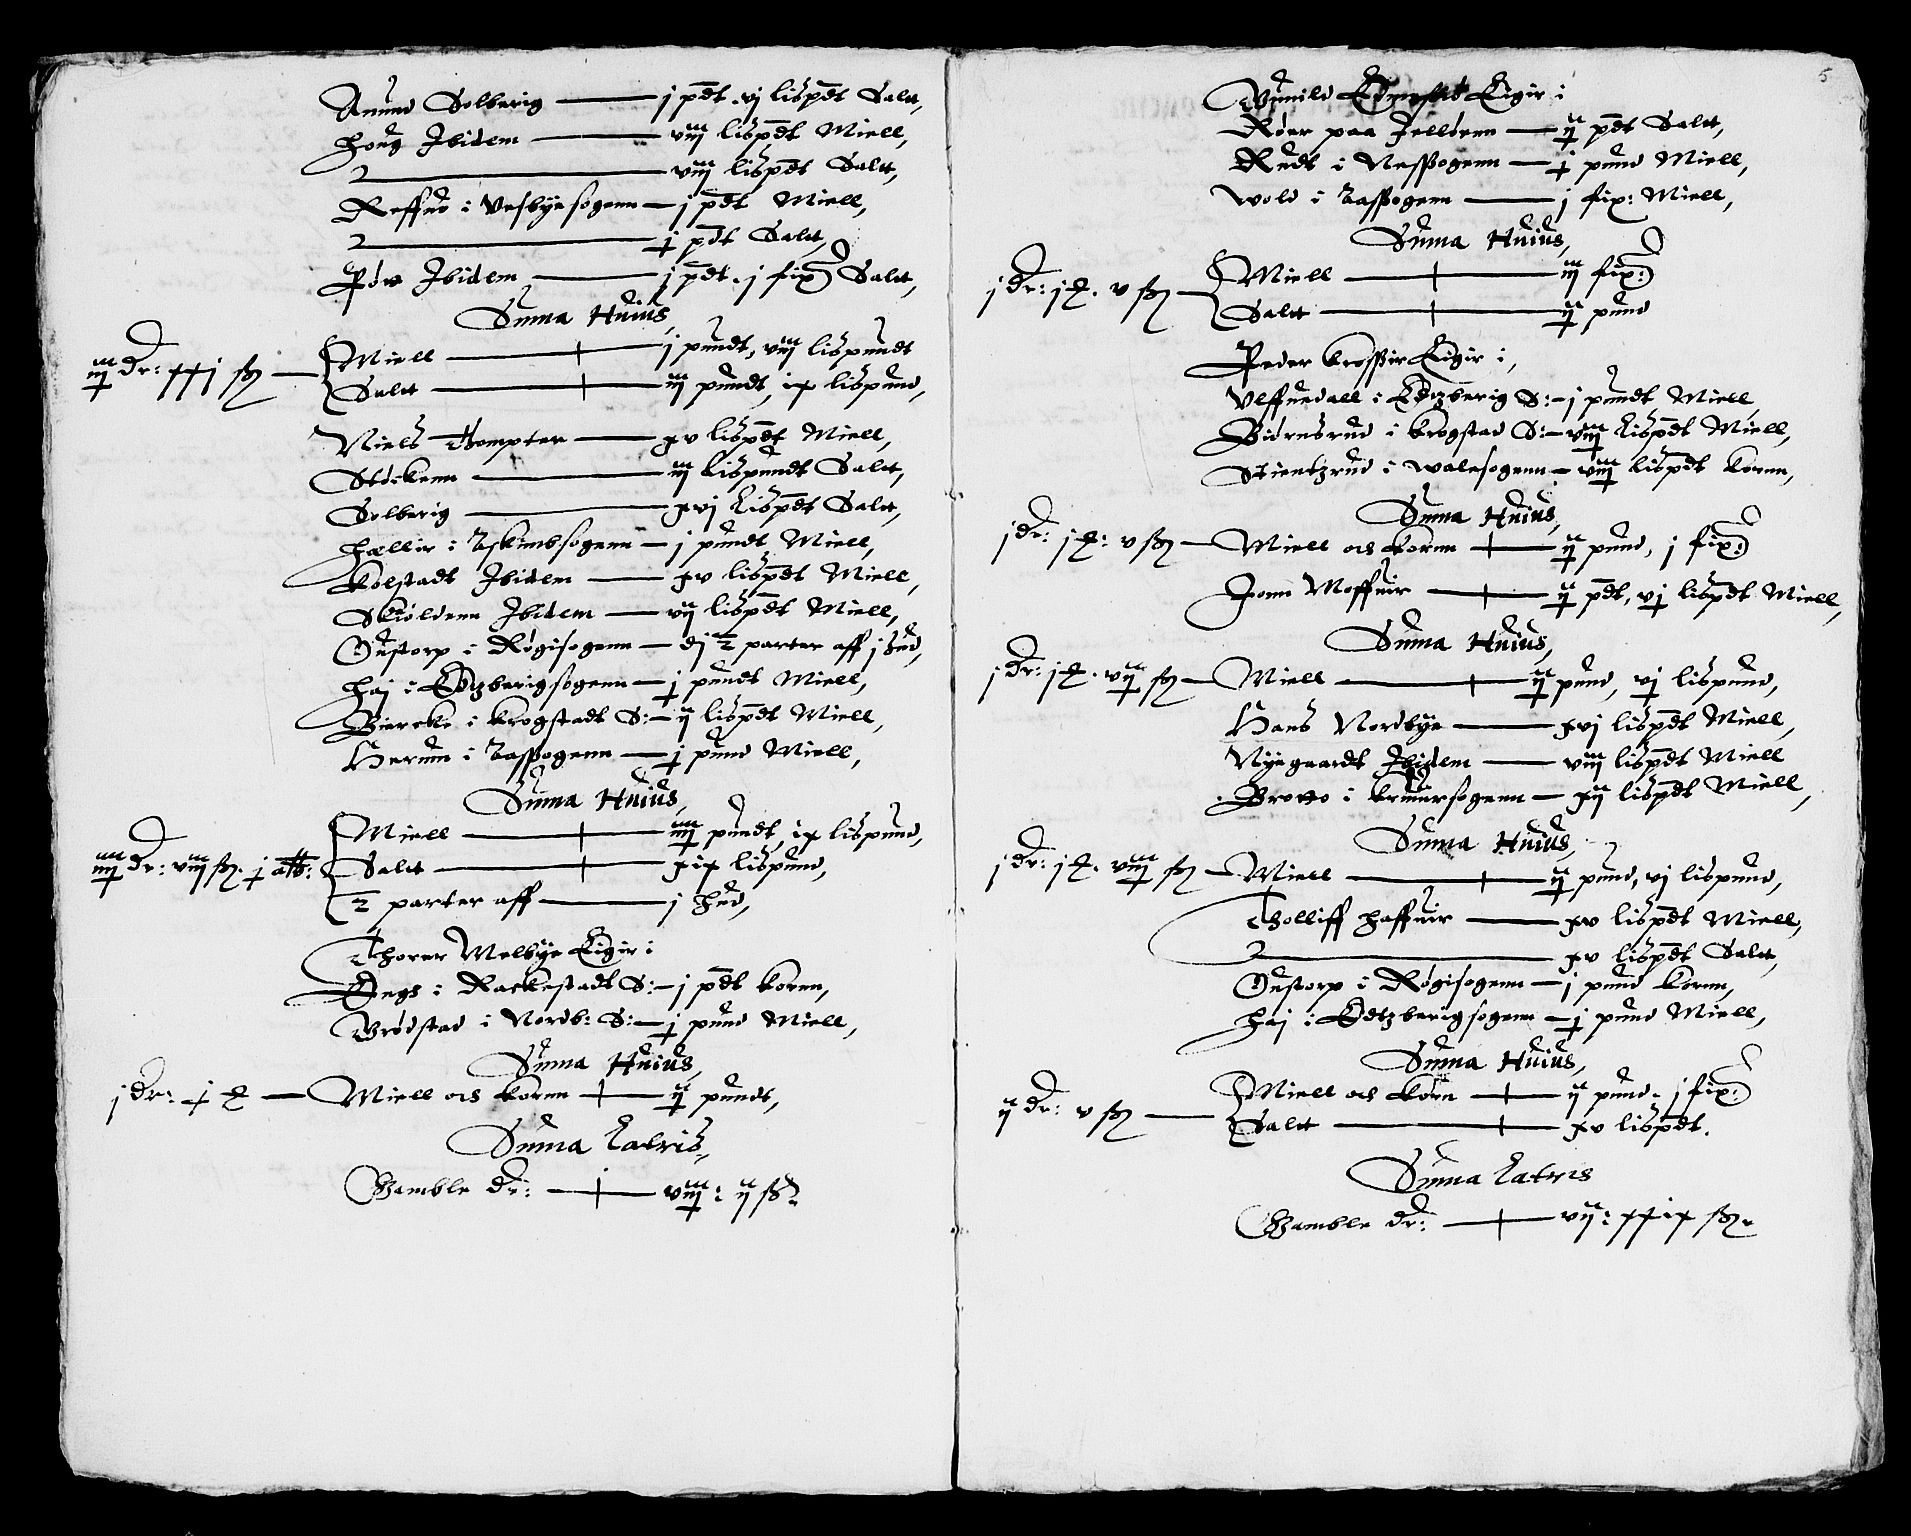 Anund Solberig — j pdt. vj lispdt Salt,
Houg Ibidem — viij lispdt Miell,
2 — viij lispdt Salt,
Reffuo i Vesbyesogenn — j pdt Miell,
2 — j pdt Salt,
Røer Ibidem — j pdt. j fix Salt,
Suma Huius,
iij dr: xxj sß — Miell — j pundt, viij lispundt
Salt — iij pundt, ix lispund,
Niels Thompter — xv lispdt Miell,
Stockenn — iij lispundt Salt,
Solberig — xvj lispdt Salt,
Hellir i Askimbsogenn — j pundt Miell,
Kolstadt Ibidem — xv lispdt Miell,
Skioldenn Ibidem — vij lispdt Miell,
Oustorp i Røgisogenn — dj 2 parter aff j hud,
Haj i Edtzberigsogenn — j pundt Miell,
Biercke i Krogstadt S: — ij lispdt Miell,
Herum i Aassogenn — j pund Miell,
Suma Huius,
iiij dr: viij sß. j alb: Miell — iiij pundt, ix lispund,
Salt — xix lispund,
2 parter aff — j hud,
Thorer Melbye Eigir i
Engs i Rackestadt S: — j pdt Korn,
Brødstad i Nordb: S: — j pund Miell,
Suma Huius,
j dr: j — Miell och Korn — ij pundt,
Suma Latris,
Gamble dr: — viij: ij sß
5
Gunild Eigir i
Røer paa Jelløenn — ij pdt Salt,
Rudt i Nessogenn — j pund Miell,
Wold i Aassogenn — j fix: Miell,
Suma Huius,
j dr: j. v sß — Miell — iij fix:
Salt — ij pund
Peder Krossir Eigir i,
Ulffuedall i Edtzberig S: — j pundt Miell,
Biørnsrud i Krogstad S: — viij lispdt Miell,
Stientzrud i Walesogenn — viij lispdt Korn,
Suma Huius,
j dr: j: v sß — Miell och Korn — ij pund, j fix:
Jonn Moffuir — ij pdt, vj lispdt Miell,
Suma Huius,
j dr: j. vij sß — Miell — ij pund, vj lispund,
Hans Nordbye — xvj lispdt Miell,
Nyegaardt Ibidem — viij lispdt Miell
Brotto i Kruersogenn — xij lispdt Miell,
Suma Huius,
j dr: j. viij sß — Miell — ij pund, vj lispund,
Tholliff Haffuir — xv lispdt Miell,
2 — xv lispdt Salt,
Oustorp i Røgisogenn — j pund Korn,
Haj i Edtzberigsogenn — j pund Miell,
Suma Huius,
ij dr: v sß — Miell och Korn — ij pund. j fix:
Salt — xv lispdt.
Suma Latris
Gamble dr: — vij: xxix sß.